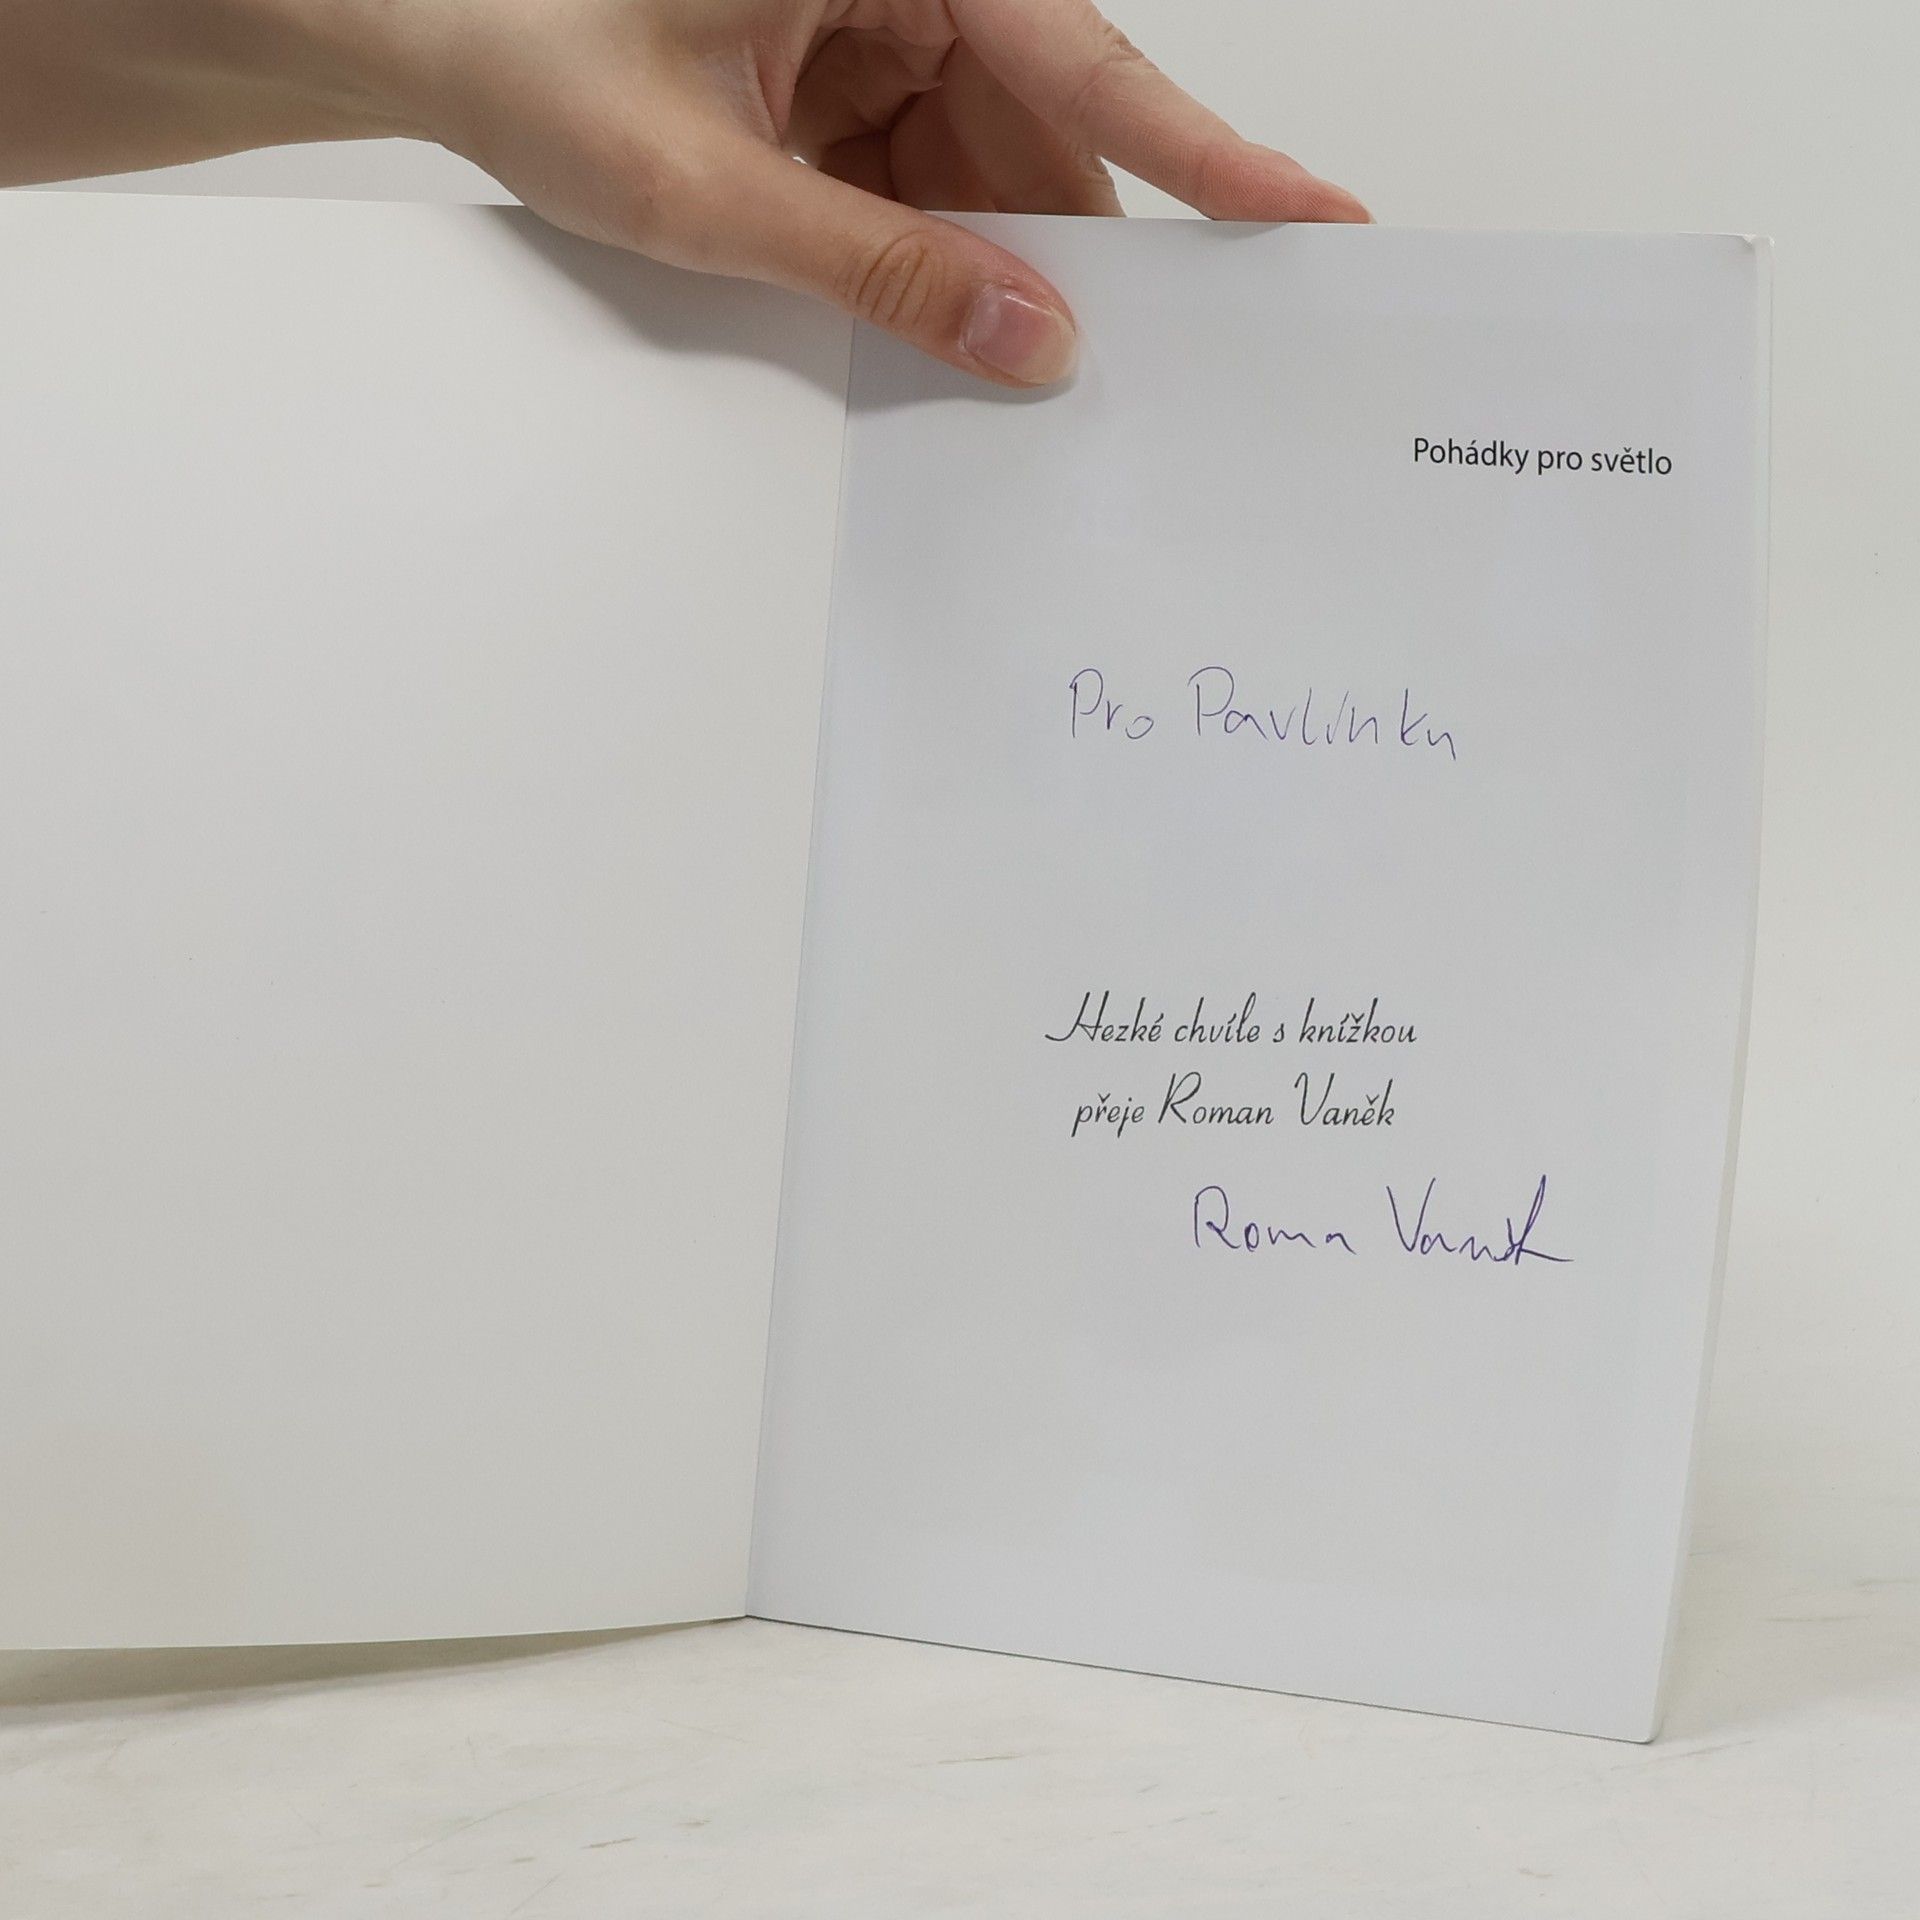 Pohádky pro světlo
Pro Pavlínku
Hezké chvíle s knížkou
přeje Roman Vaněk
Roman Vaněk